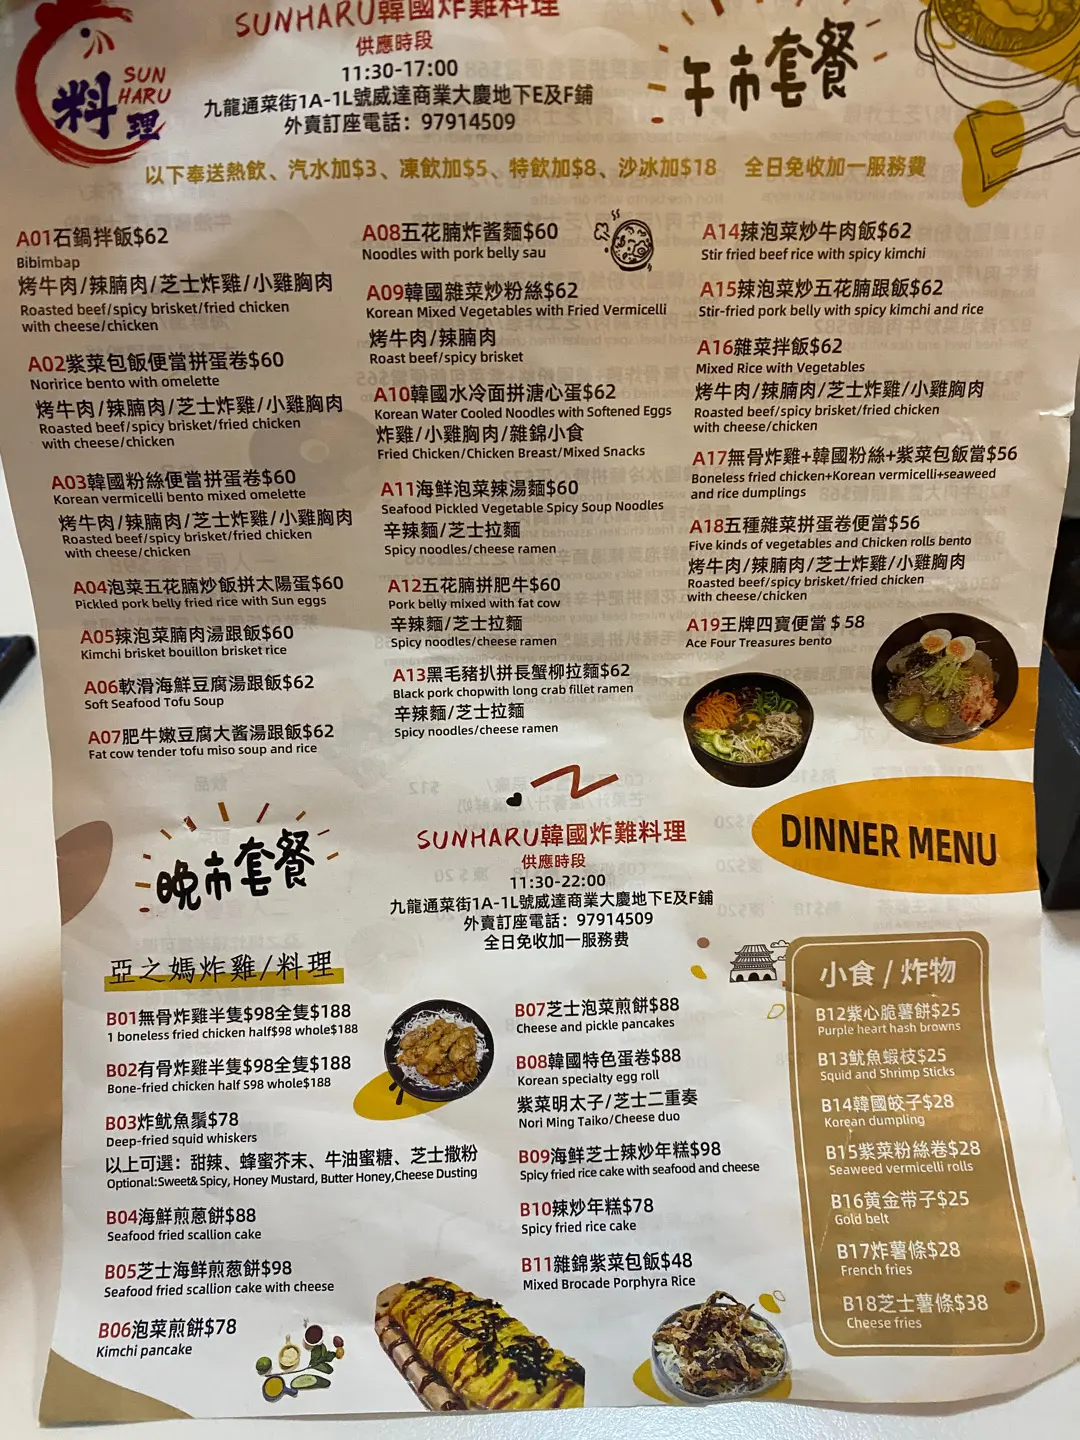 SUNHARU韓國炸雞料理
供應時段
11:30-17:00
九龍通菜街1A-1L號威達商業大廈地下E及F鋪
外賣訂座電話：97914509
SUN
HARU
料理
午市套餐
以下奉送熱飲、汽水加$3、凍飲加$5、特飲加$8、沙冰加$18 全日免收加一服務費
A01石鍋拌飯$62
Bibimbap
烤牛肉/辣腩肉/芝士炸雞/小雞胸肉
Roasted beef/spicy brisket/fried chicken
with cheese/chicken
A02紫菜包飯便當拼蛋卷$60
Noririce bento with omelette
烤牛肉/辣腩肉/芝士炸雞/小雞胸肉
Roasted beef/spicy brisket/fried chicken
with cheese/chicken
A03韓國粉絲便當拼蛋卷$60
Korean vermicelli bento mixed omelette
烤牛肉/辣腩肉/芝士炸雞/小雞胸肉
Roasted beef/spicy brisket/fried chicken
with cheese/chicken
A04泡菜五花腩炒飯拼太陽蛋$60
Pickled pork belly fried rice with Sun eggs
A05辣泡菜腩肉湯跟飯$60
Kimchi brisket bouillon brisket rice
A06軟滑海鮮豆腐湯跟飯$62
Soft Seafood Tofu Soup
A07肥牛嫩豆腐大酱湯跟飯$62
Fat cow tender tofu miso soup and rice
A08五花腩炸酱麵$60
Noodles with pork belly sau
A09韓國雜菜炒粉絲$62
Korean Mixed Vegetables with Fried Vermicelli
烤牛肉/辣腩肉
Roast beef/spicy brisket
A10韓國水冷面拼溏心蛋$62
Korean Water Cooled Noodles with Softened Eggs
炸雞/小雞胸肉/雜錦小食
Fried Chicken/Chicken Breast/Mixed Snacks
A11海鮮泡菜辣湯麵$60
Seafood Pickled Vegetable Spicy Soup Noodles
辛辣麵/芝士拉麵
Spicy noodles/cheese ramen
A12五花腩拼肥牛$60
Pork belly mixed with fat cow
辛辣麵/芝士拉麵
Spicy noodles/cheese ramen
A13黑毛豬扒拼長蟹柳拉麵$62
Black pork chopwith long crab fillet ramen
辛辣麵/芝士拉麵
Spicy noodles/cheese ramen
A14辣泡菜炒牛肉飯$62
Stir fried beef rice with spicy kimchi
A15辣泡菜炒五花腩跟飯$62
Stir-fried pork belly with spicy kimchi and rice
A16雜菜拌飯$62
Mixed Rice with Vegetables
烤牛肉/辣腩肉/芝士炸雞/小雞胸肉
Roasted beef/spicy brisket/fried chicken
with cheese/chicken
A17無骨炸雞+韓國粉絲+紫菜包飯當$56
Boneless fried chicken+Korean vermicelli+seaweed
and rice dumplings
A18五種雜菜拼蛋卷便當$56
Five kinds of vegetables and Chicken rolls bento
烤牛肉/辣腩肉/芝士炸雞/小雞胸肉
Roasted beef/spicy brisket/fried chicken
with cheese/chicken
A19王牌四寶便當＄58
Ace Four Treasures bento
晚市套餐
SUNHARU韓國炸雞料理
供應時段
11:30-22:00
九龍通菜街1A-1L號威達商業大廈地下E及F鋪
外賣訂座電話：97914509
全日免收加一服務費
DINNER MENU
亞之媽炸雞/料理
B01無骨炸雞半隻$98全隻$188
1 boneless fried chicken half$98 whole$188
B02有骨炸雞半隻$98全隻$188
Bone-fried chicken half S98 whole$188
B03炸魷魚鬚$78
Deep-fried squid whiskers
以上可選：甜辣、蜂蜜芥末、牛油蜜糖、芝士撒粉
Optional:Sweet& Spicy, Honey Mustard, Butter Honey,Cheese Dusting
B04海鮮煎蔥餅$88
Seafood fried scallion cake
B05芝士海鮮煎葱餅$98
Seafood fried scallion cake with cheese
B06泡菜煎餅$78
Kimchi pancake
B07芝士泡菜煎餅$88
Cheese and pickle pancakes
B08韓國特色蛋卷$88
Korean specialty egg roll
紫菜明太子/芝士二重奏
Nori Ming Taiko/Cheese duo
B09海鮮芝士辣炒年糕$98
Spicy fried rice cake with seafood and cheese
B10辣炒年糕$78
Spicy fried rice cake
B11雜錦紫菜包飯$48
Mixed Brocade Porphyra Rice
小食 / 炸物
B12紫心脆薯餅$25
Purple heart hash browns
B13魷魚蝦枝$25
Squid and Shrimp Sticks
B14韓國餃子$28
Korean dumpling
B15紫菜粉絲卷$28
Seaweed vermicelli rolls
B16黄金带子$25
Gold belt
B17炸薯條$28
French fries
B18芝士薯條$38
Cheese fries